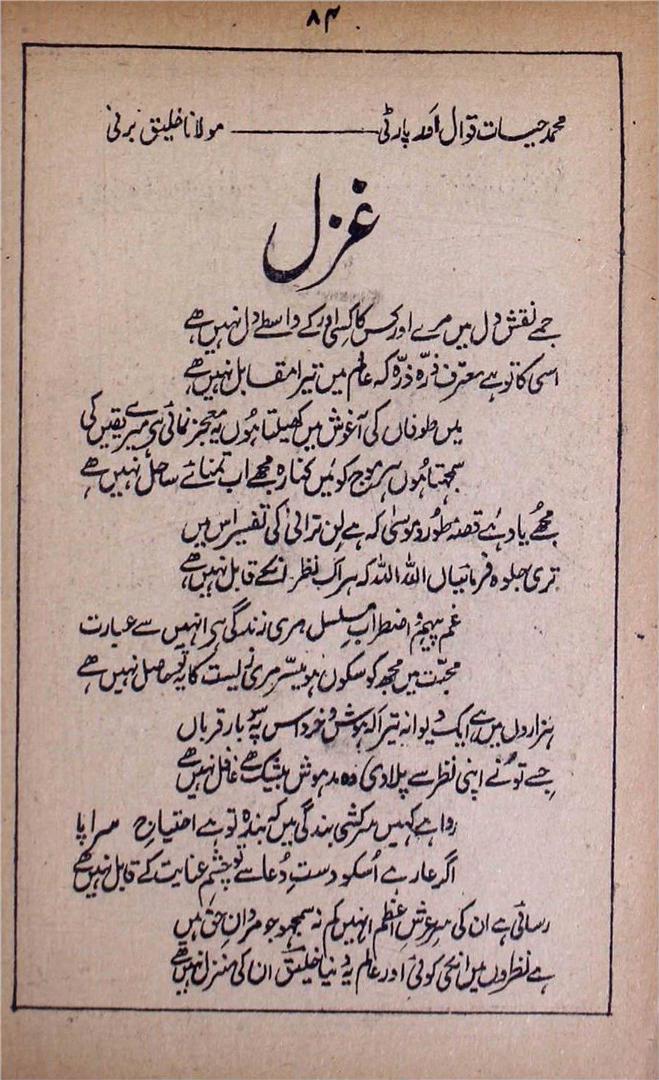 ۸۴
محمد حیات قوال اور پارٹی ——— مولانا خلیق برنی
غزل
جمے نقش دل میں مرے اور کس کا کسی اور کے واسطے دل نہیں ہے
اسی کا تو ہے معترف ذرّہ ذرّہ کہ عالم میں تیرا مقابل نہیں ہے
میں طوفاں کی آغوش میں کھیلتا ہوں یہ معجز نمائی ہے میرے یقیں کی
سمجھتا ہوں ہر موج کو میں کنارہ مجھے اب تمنائے ساحل نہیں ہے
مجھے یاد ہے قصہ طور و موسیٰ کہ ہے لن ترانی کی تفسیر اس میں
تری جلوہ فرمائیاں اللہ اللہ کہ ہر اک نظر انکے قابل نہیں ہے
غم پیہم و اضطراب مسلسل مری زندگی ہے انہیں سے عبارت
محبّت میں مجھ کو سکوں ہو میسّر مری زیست کا یہ تو حاصل نہیں ہے
ہزاروں میں ہے ایک دیوانہ تیرا کہ ہوش و خرد اس پہ سو بار قرباں
جسے تو نے اپنی نظر سے پلا دی وہ مدہوش بیشک ہے غافل نہیں ہے
روا ہے کہیں سرکشی بندگی میں کہ بندہ تو ہے احتیاج سراپا
اگر عار ہے اُسکو دستِ دُعا سے تو چشمِ عنایت کے قابل نہیں ہے
رسائی ہے ان کی سرِ عرشِ اعظم انہیں کم نہ سمجھو جو مردانِ حق ہیں
ہے نظروں میں انکی کوئی اور عالم یہ دنیا خلیقؔ ان کی منزل نہیں ہے